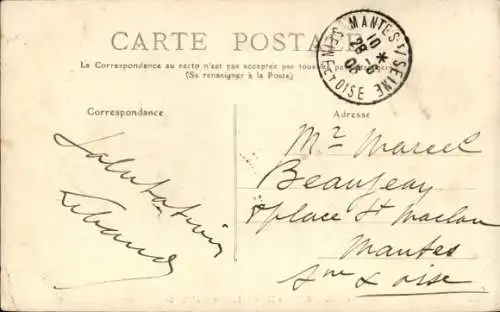 CARTE POSTALE
La Correspondance au recto n'est pas acceptée par tous les pays étrangers
(Se renseigner à la Poste)
MANTES S/ SEINE
SEINE-ET-OISE
10
28 -8
Correspondance
Adresse
Mr Marcel
Beaujeay
8 place St Maclou
Mantes
Sne & Oise
Salutations